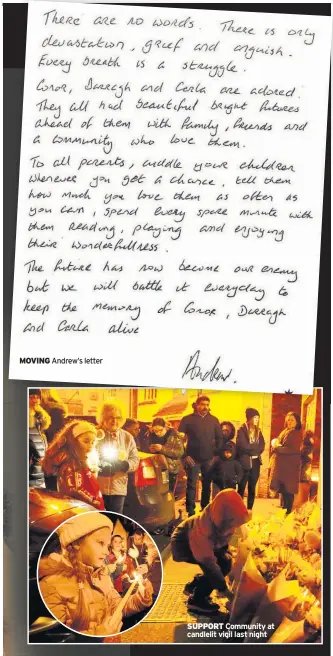 There are no words. There is only
devastation, grief and anguish.
Every breath is a struggle.
Conor, Darragh and Carla are adored.
They all had beautiful bright futures
ahead of them with family, friends and
a community who love them.
To all parents, cuddle your children
whenever you get a chance, tell them
how much you love them as often as
you can, spend every spare minute with
them reading, playing and enjoying
their wonderfullness.
The future has now become our enemy
but we will battle it everyday to
keep the memory of Conor, Darragh
and Carla alive
Andrew.
MOVING Andrew's letter
SUPPORT Community at
candlelit vigil last night